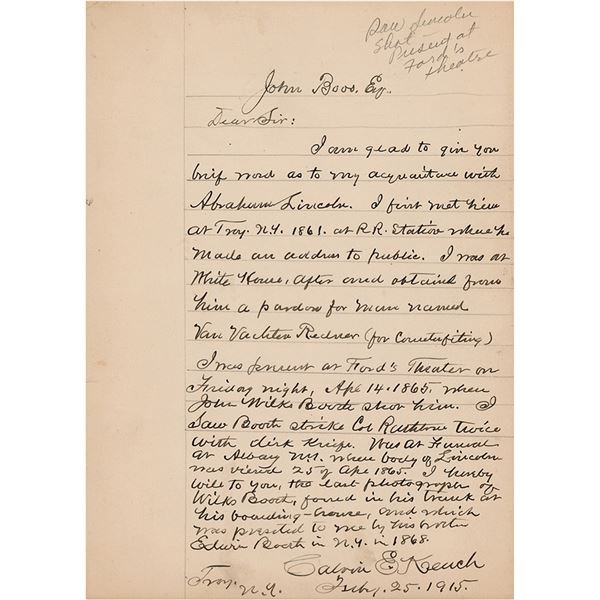 Saw Lincoln
Shot
Present at
Ford's
Theatre
John Boos. Esq.
Dear Sir:
I am glad to give you
brief word as to my acquaintance with
Abraham Lincoln. I first met him
at Troy. N.Y. 1861. at R.R. Station where he
made an address to public. I was at
White House, after and obtained from
him a pardon for man named
Van Vachten Redner (for Counterfiting)
I was present at Ford's Theater on
Friday night, Apl 14. 1865, when
John Wilks Booth shot him. I
saw Booth strike Col Rathbone twice
with dirk knife. Was at Funeral
at Albany N.Y. when body of Lincoln
was viewed 25 of Apl 1865. I hereby
will to you, the last photograph of
Wilks Booth, found in his trunk at
his boarding-house, and which
was presented to me by his brother
Edwin Booth in N.Y. in 1868.
Calvin E. Keach
Troy. N.Y. Feby. 25. 1915.